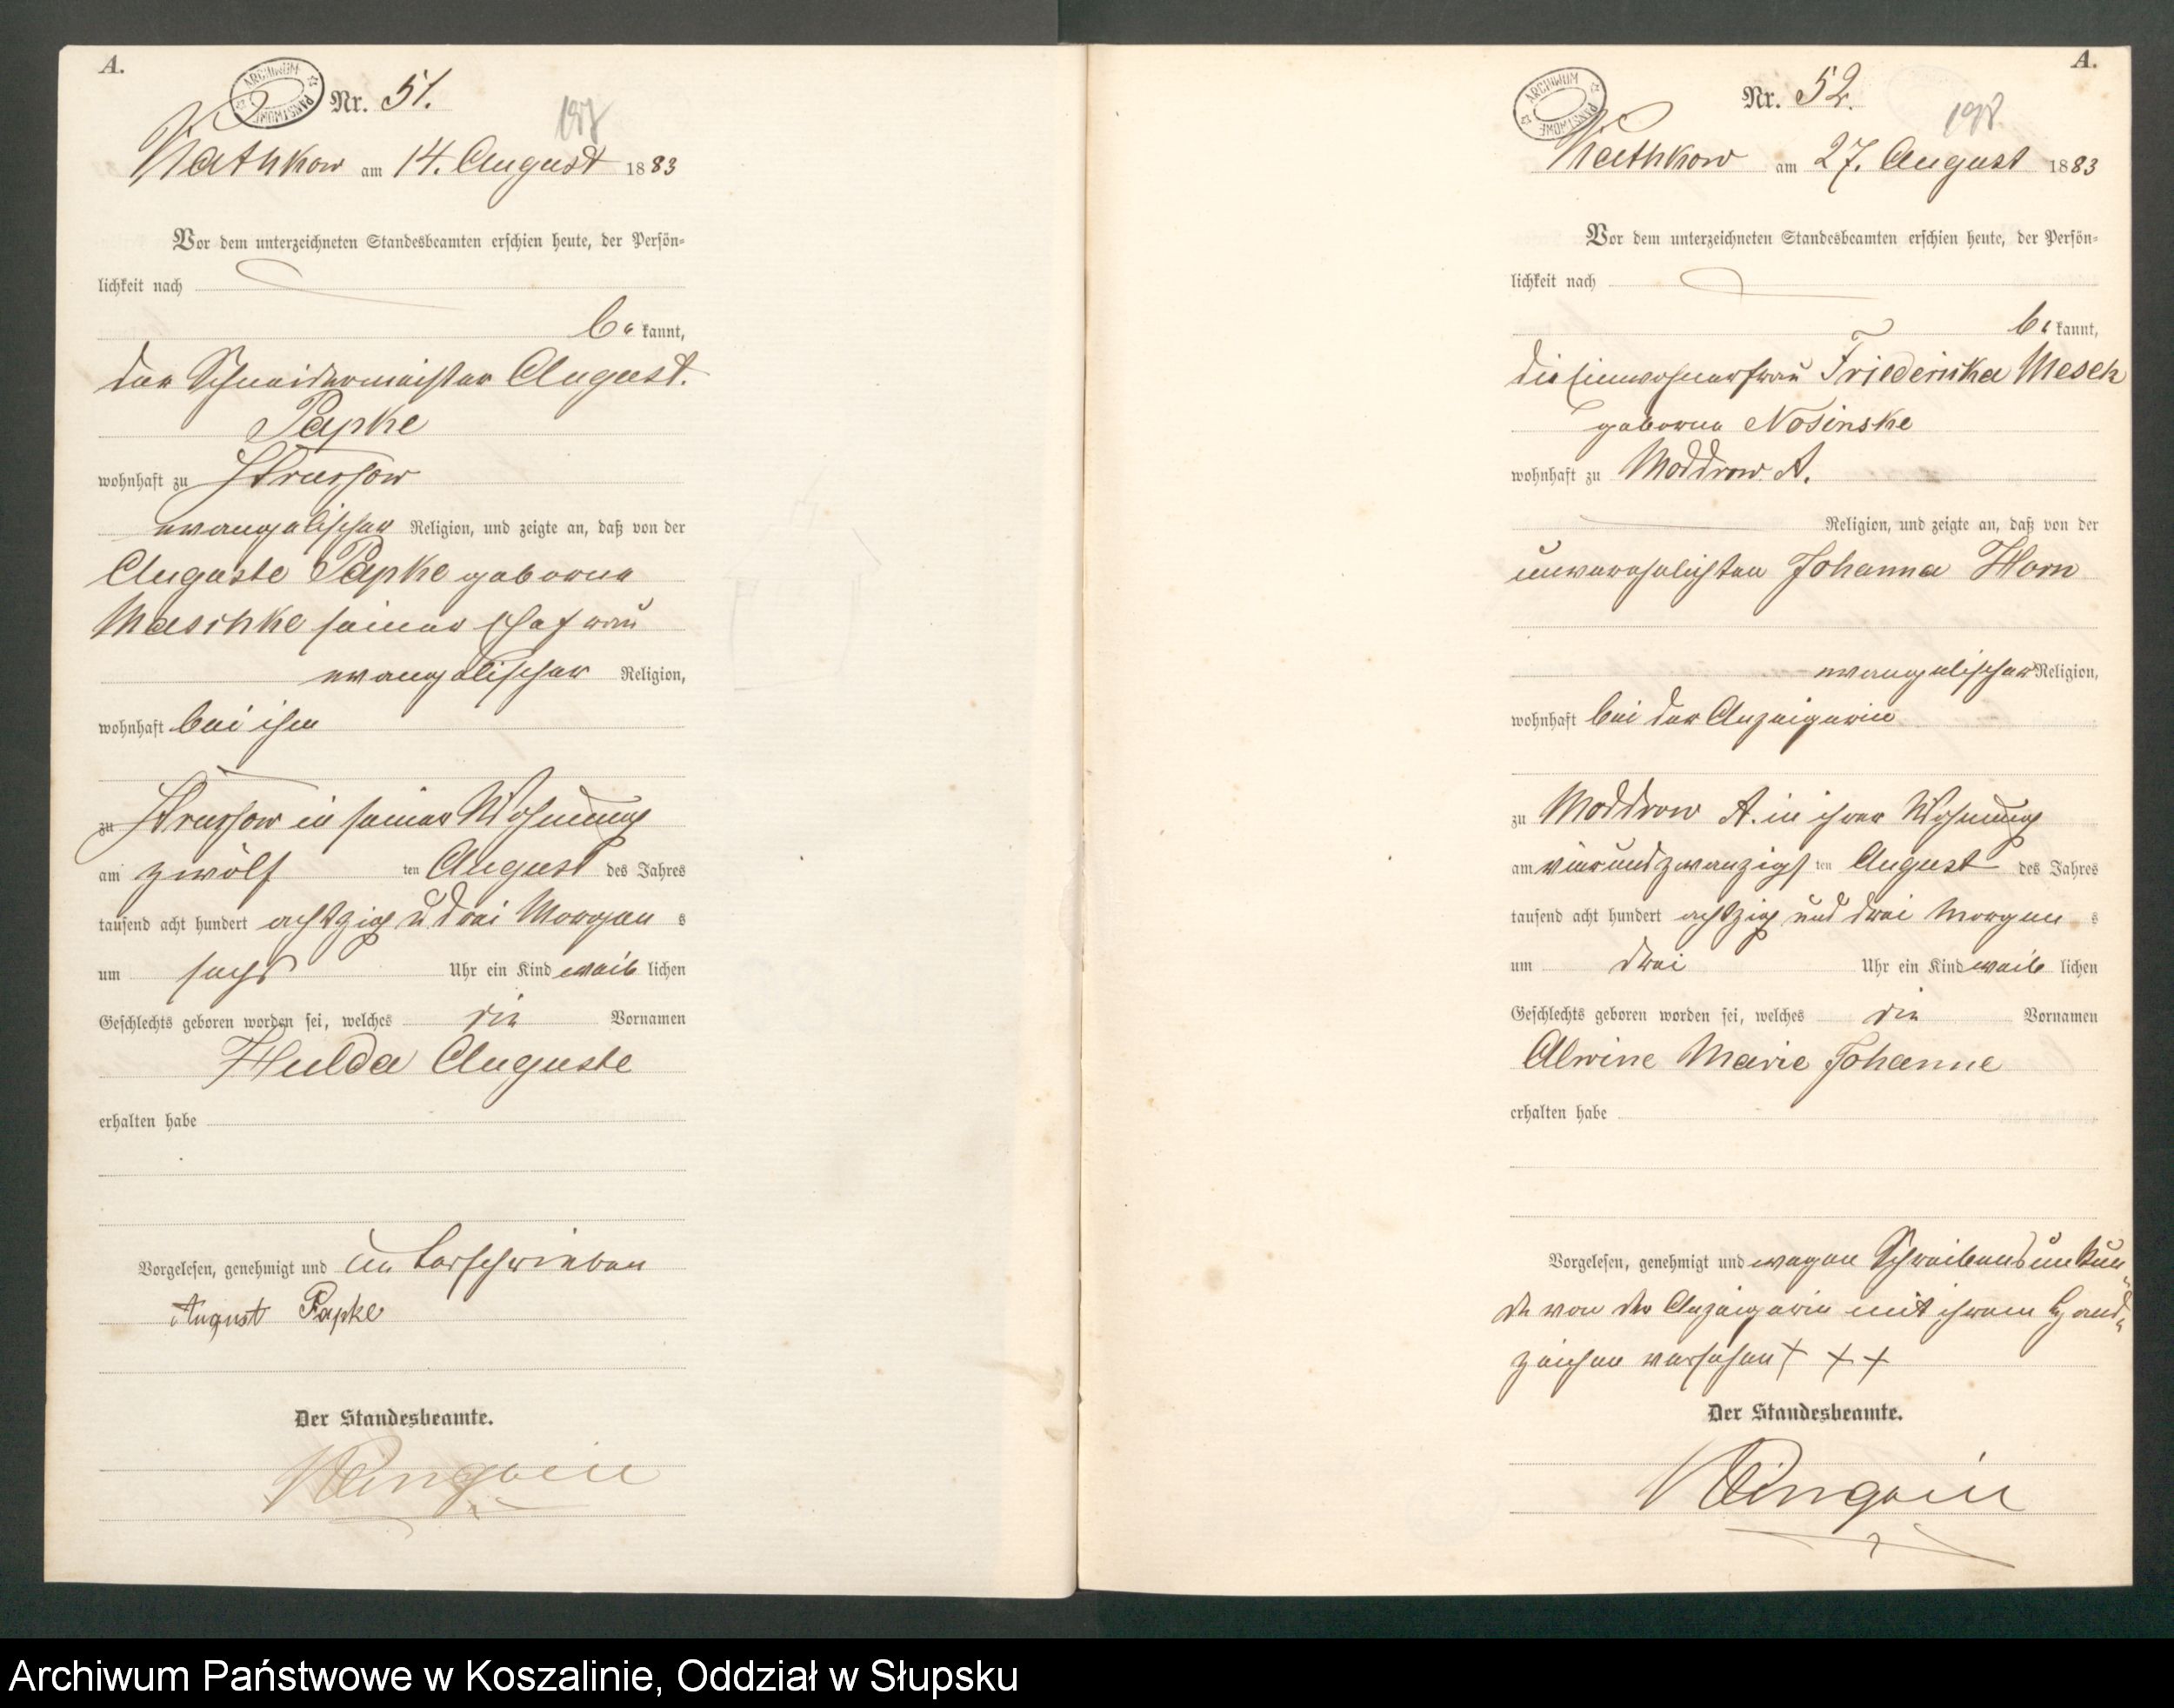 A.
ARCHIWUM PAŃSTWOWE
Nr. 51.
197
Wathkow am 14. August 1883
Vor dem unterzeichneten Standesbeamten erschien heute, der Persön-
lichkeit nach
be kannt,
der Schneidermeister August.
Papke
wohnhaft zu Strussow
evangelischer Religion, und zeigte an, daß von der
Auguste Papke geborne
Maschke seiner Ehefrau
evangelischer Religion,
wohnhaft bei ihm
zu Strussow in seiner Wohnung
am zwölf ten August des Jahres
tausend acht hundert achtzig u drei Morgen s
um sechs Uhr ein Kind weib lichen
Geschlechts geboren worden sei, welches die Vornamen
Hulda Auguste
erhalten habe
Vorgelesen, genehmigt und unterschrieben
August Papke
Der Standesbeamte.
A.
ARCHIWUM PAŃSTWOWE
Nr. 52.
198
Wathkow am 27. August 1883
Vor dem unterzeichneten Standesbeamten erschien heute, der Persön-
lichkeit nach
be kannt,
die Einwohnerfrau Friederika Mesch
geborne Nosinske
wohnhaft zu Moddrow A.
Religion, und zeigte an, daß von der
unverehelichten Johanna Horn
evangelischer Religion,
wohnhaft bei der Anzeigerin
zu Moddrow A. in ihrer Wohnung
am vierundzwanzigs ten August des Jahres
tausend acht hundert achtzig und drei Morgen s
um drei Uhr ein Kind weib lichen
Geschlechts geboren worden sei, welches die Vornamen
Alwine Marie Johanne
erhalten habe
Vorgelesen, genehmigt und wegen Schreibensunkun-
de von der Anzeigerin mit ihrem Hand-
zeichen versehen + + +
Der Standesbeamte.
Archiwum Państwowe w Koszalinie, Oddział w Słupsku